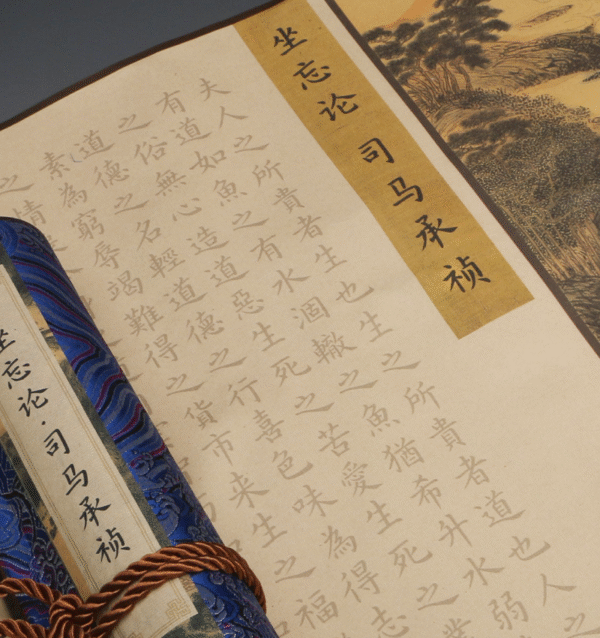 坐忘论 司马承祯
夫人之所貴者生也生之所貴者道也人之
有道如魚之有水涸轍之魚猶希升水弱
之俗無心造道惡生死之苦愛生死之
道德之名輕道德之行喜色味為得志
素為窮辱竭難得之貨市来生之福
之情
坐忘论·司马承祯